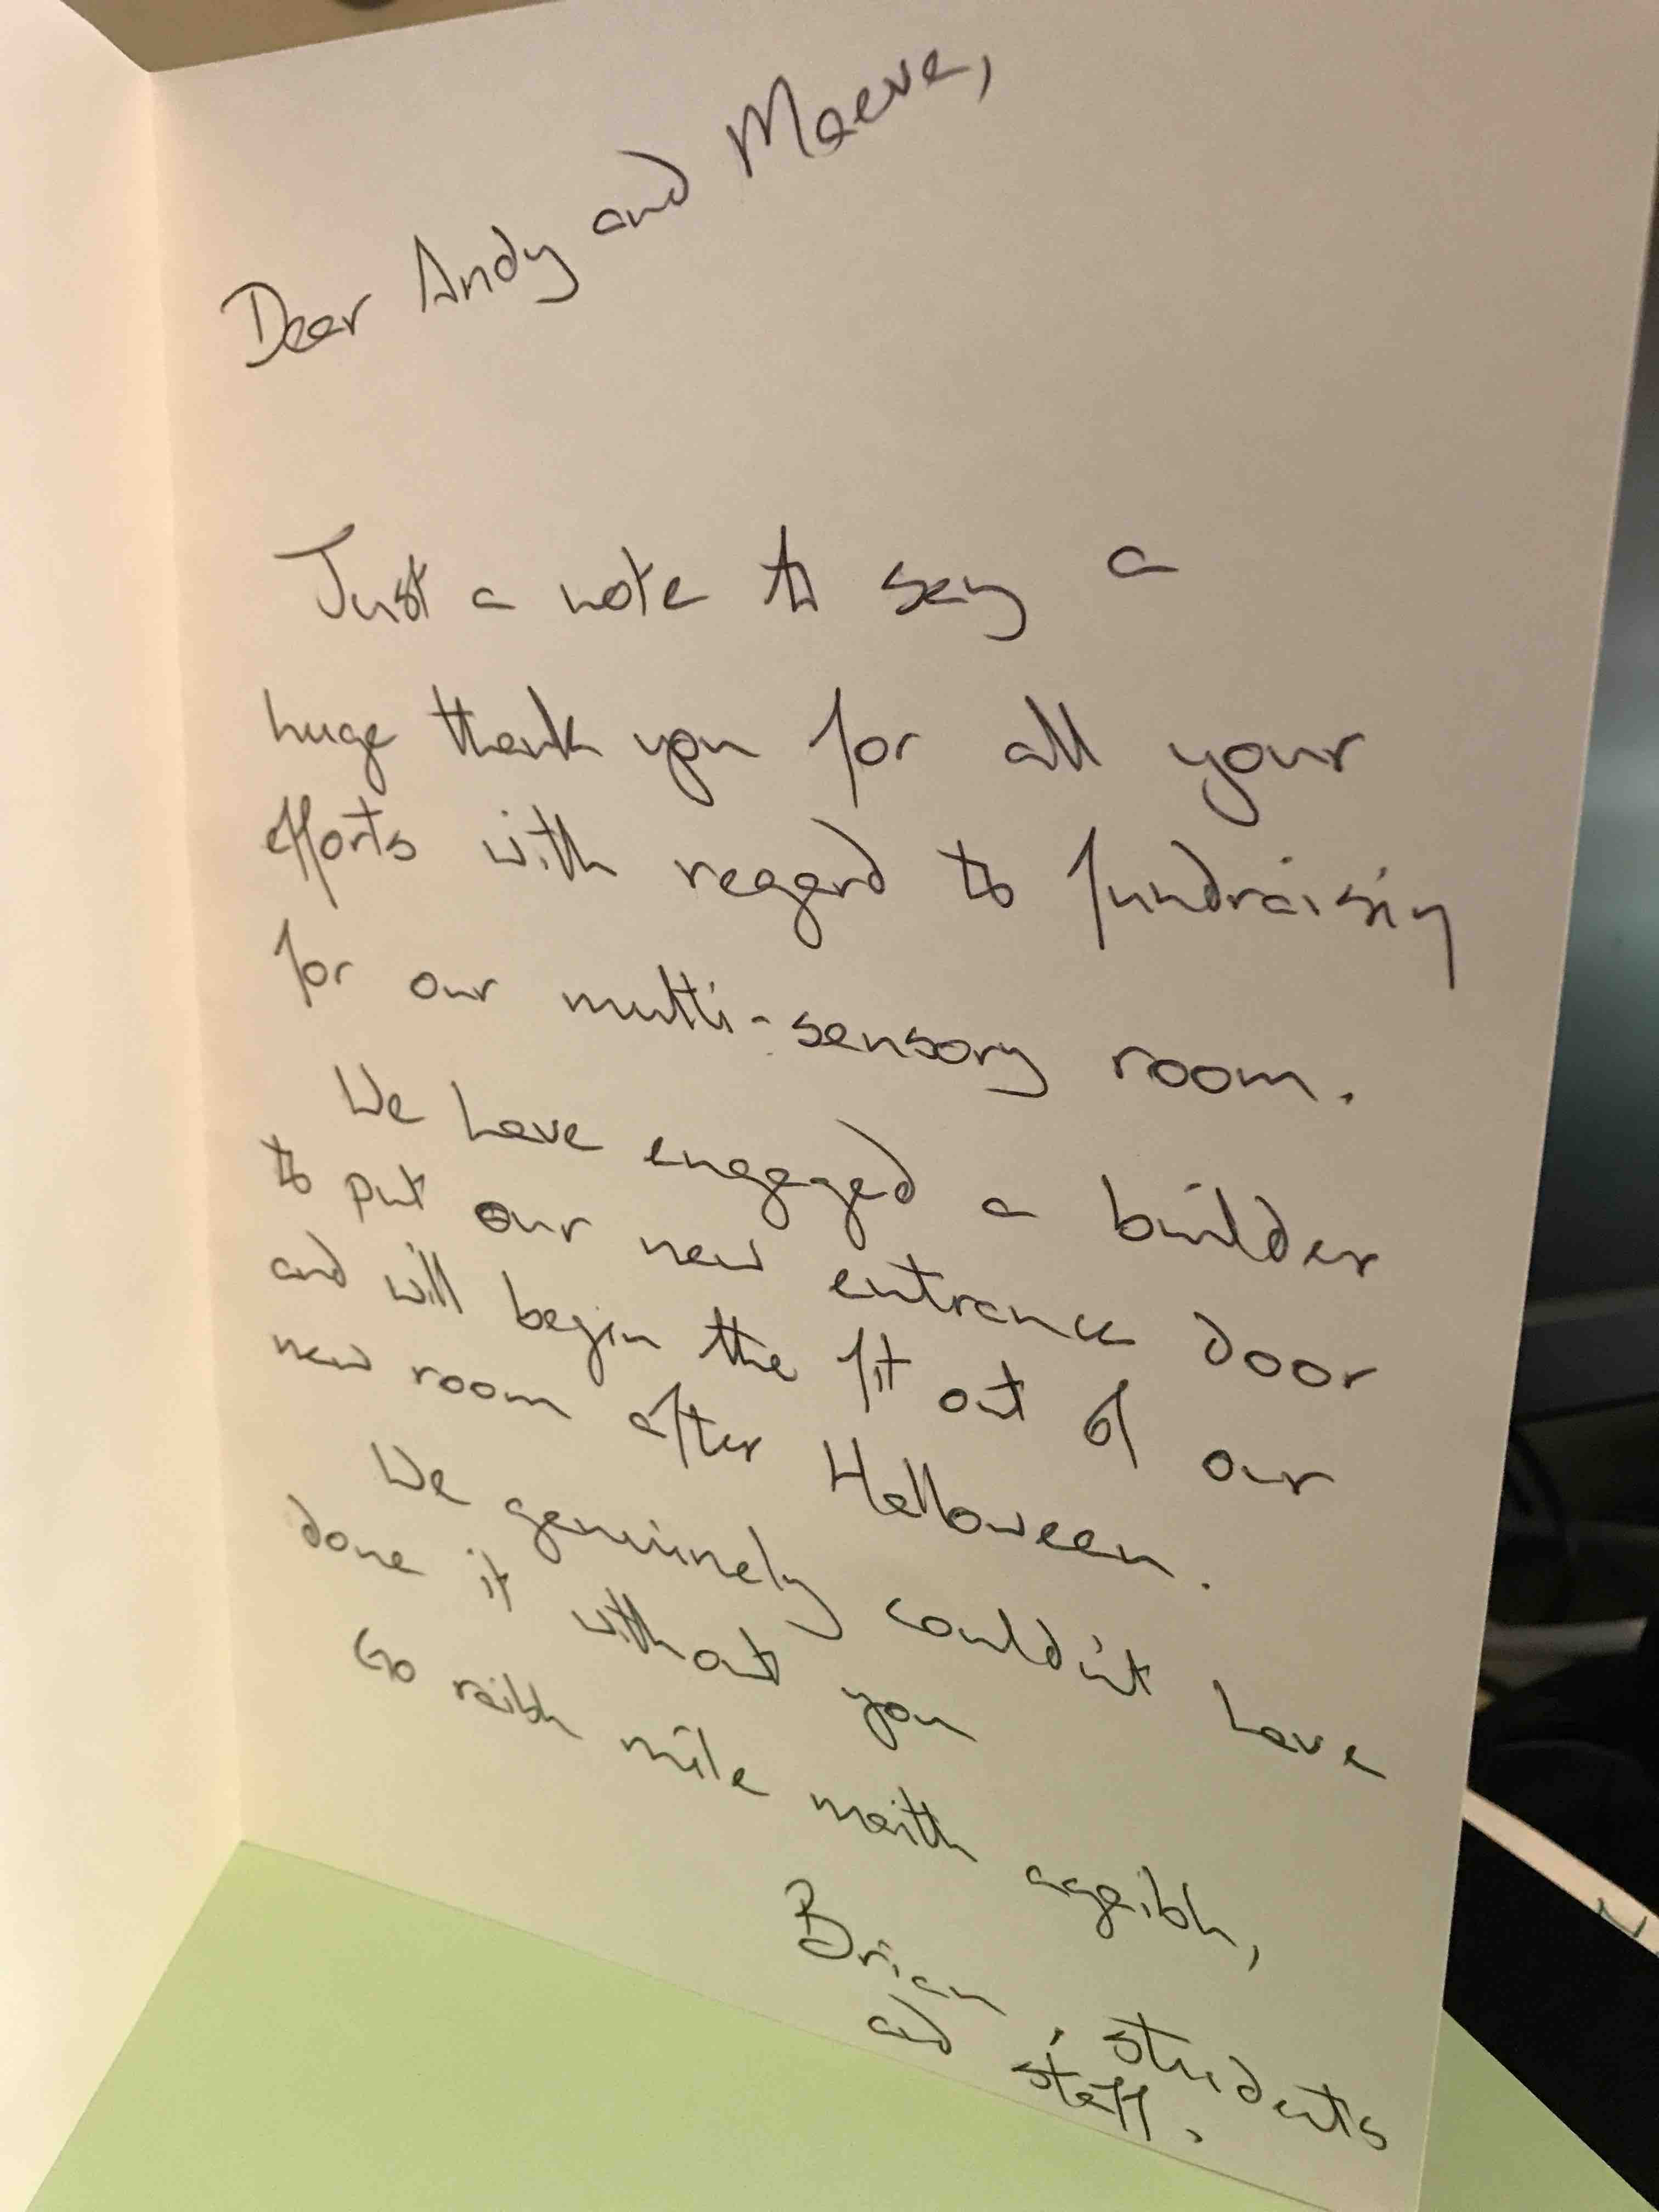 Dear Andy and Maeve,
Just a note to say a
huge thank you for all your
efforts with regard to fundraising
for our multi-sensory room.
We have engaged a builder
to put our new entrance door
and will begin the fit out of our
new room after Halloween.
We genuinely couldn't have
done it without you
Go raibh míle maith agaibh,
Brian, students
and staff.